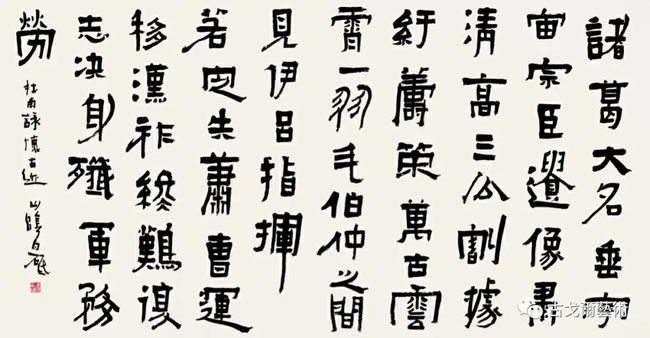 諸葛大名垂宇
宙宗臣遺像肅
清高三分割據
紆籌策萬古雲
霄一羽毛伯仲之間
見伊呂指揮
若定失蕭曹運
移漢祚終難復
志决身殲軍務
勞
杜甫詠懷古迹 山陰白砥
古戈爾藝術